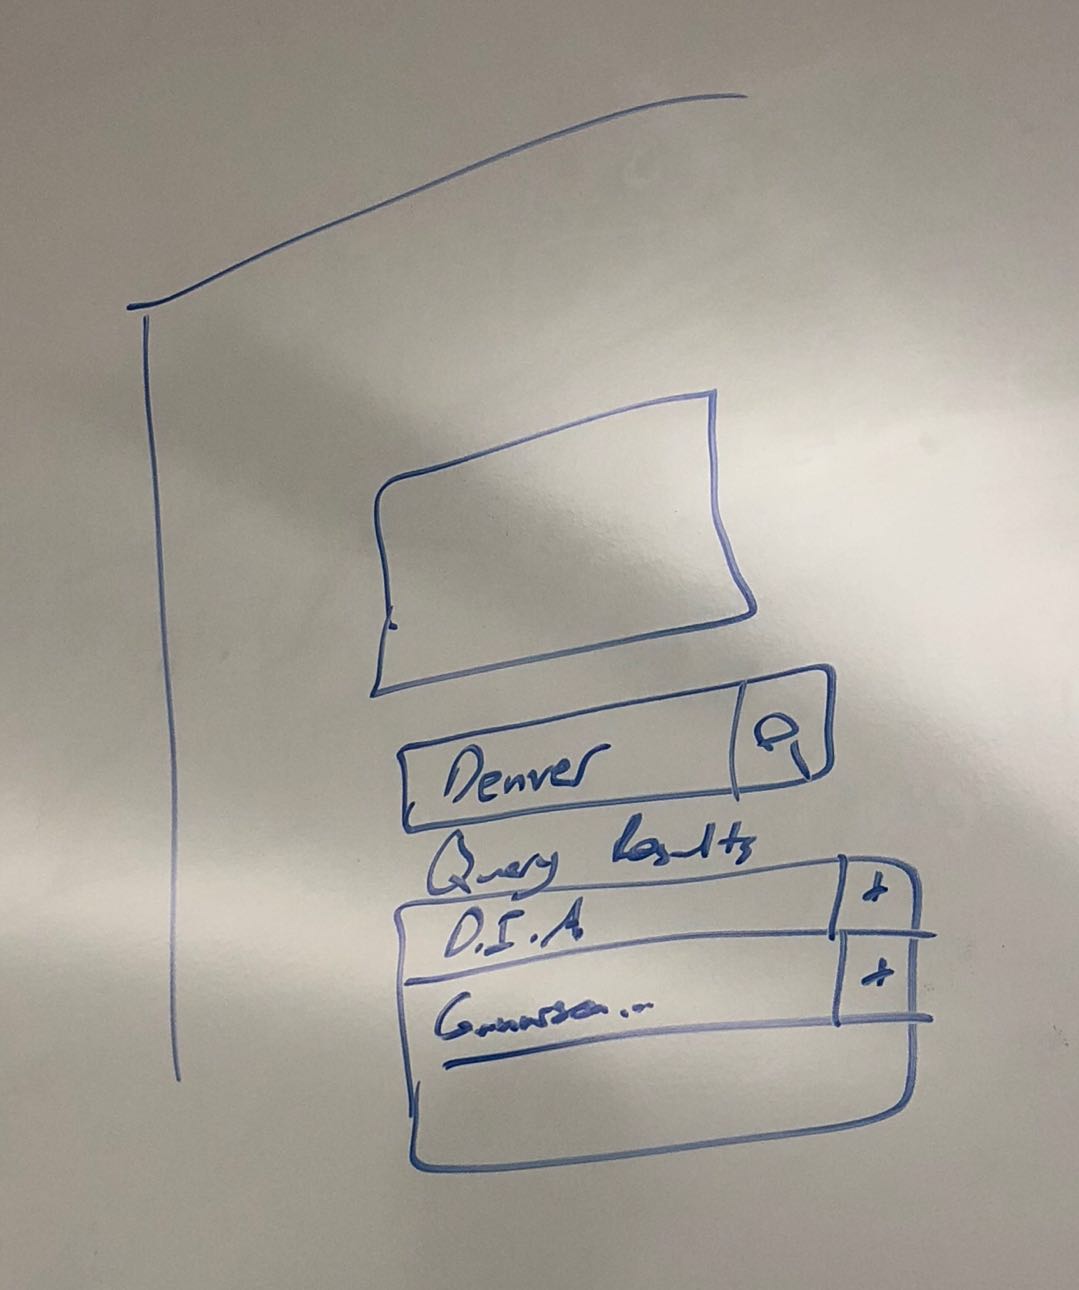 Denver
Query Results
D.I.A +
Gunnison... +